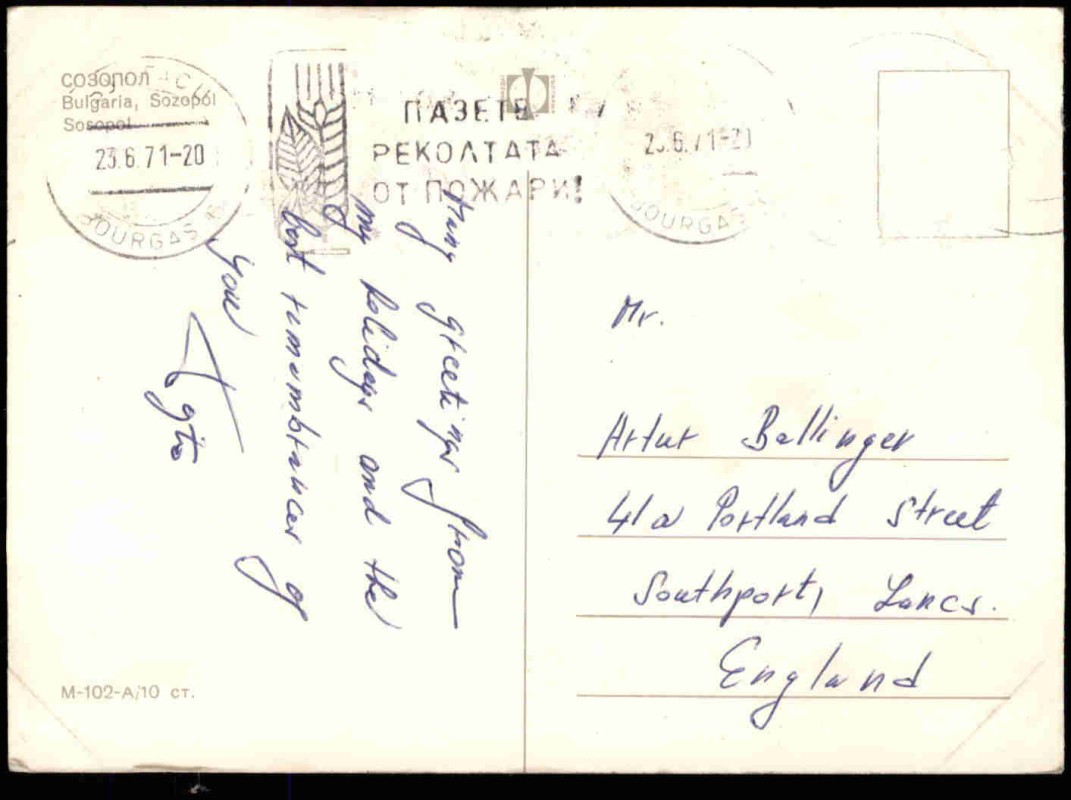 СОЗОПОЛ
Bulgaria, Sozopol
Sosopol
23.6.71-20
BOURGAS
ПАЗЕТЕ
РЕКОЛТАТА
ОТ ПОЖАРИ!
23.6.71-20
BOURGAS
Many greetings from
my holidays and the
best remembrances of
you
Mr.
Artur Ballinger
41a Portland Street
Southport, Lancs.
England
М-102-А/10 ст.